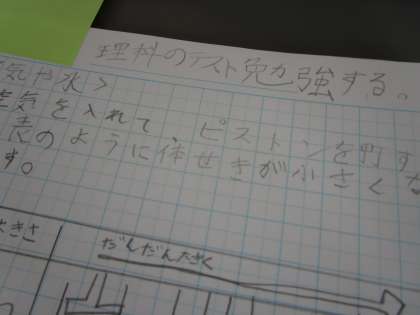 理科のテスト勉強する。
空気や水>
空気を入れて、ピストンを押す
表のように体せきが小さくな
す。
大きさ
だんだん大きく